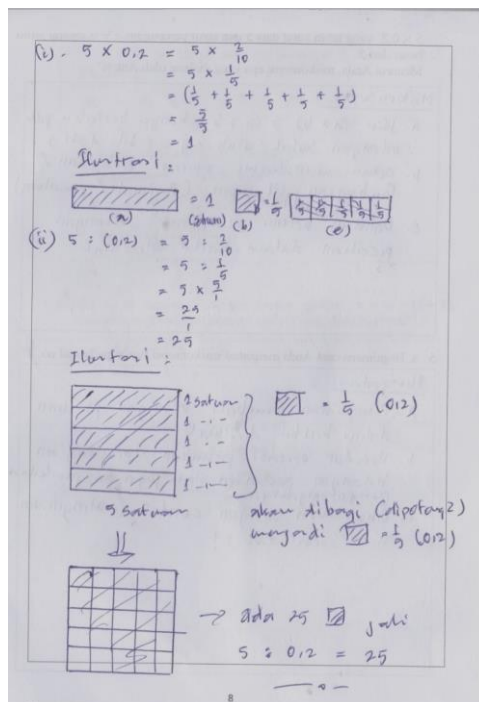 (i). 5 x 0,2 = 5 x 2/10
= 5 x 1/5
= (1/5 + 1/5 + 1/5 + 1/5 + 1/5)
= 5/5
= 1
Ilustrasi :
= 1 (satuan) = 1/5 1/5 1/5 1/5 1/5 1/5
(a) (b) (c)
(ii) 5 : (0,2) = 5 : 2/10
= 5 : 1/5
= 5 x 5/1
= 25/1
= 25
Ilustrasi :
1 satuan = 1/5 (0,2)
1 -..-
1 -..-
1 -..-
1 -..-
5 satuan akan dibagi (dipotong2)
menjadi = 1/5 (0,2)
→ ada 25 jadi
5 : 0,2 = 25
8